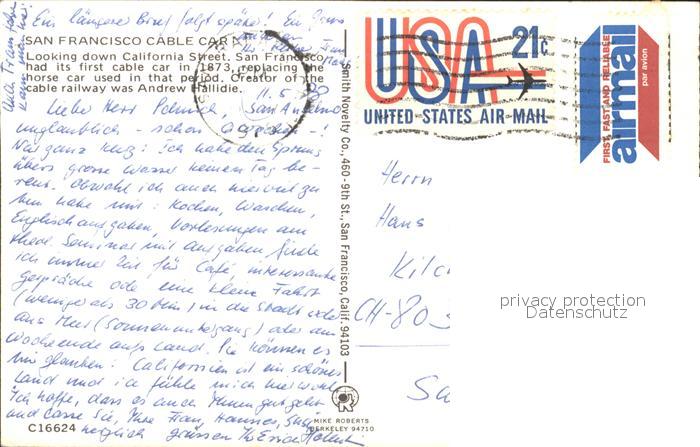 Ein längerer Brief folgt später! Ein
SAN FRANCISCO CABLE CAR
Looking down California Street. San Francisco
had its first cable car in 1873, replacing the
horse car used in that period. Creator of the
cable railway was Andrew Hallidie.
Liebe Herr San Anselmo
unglaublich - schon -!
Nur ganz kurz: Ich habe den Sprung
übers grosse Wasser keinen Tag be-
reut. Obwohl ich auch hier viel zu
tun habe mit: Kochen, Waschen,
Englischaufgaben, Vorlesungen am
theol. Seminar mit Aufgaben finde
ich immer Zeit für Café, interessante
Gespräche oder eine kleine Fahrt
(weniger als 30 Min) in die Stadt oder
ans Meer (Sonnenuntergang) oder am
Wochenende aufs Land. Sie können es
mir glauben: Californien ist ein schönes
Land und ich fühle mich hier wohl.
Ich hoffe, dass es auch Ihnen gut geht
und lasse Sie, Ihre Frau, Hannes,
herzlich grüssen
C16624
MIKE ROBERTS
BERKELEY 94710
Smith Novelty Co., 460-9th St., San Francisco, Calif. 94103
USA 21c
UNITED STATES AIR MAIL
FIRST, FAST AND RELIABLE
airmail
par avion
Herrn
Hans
Kilc
CH-80
privacy protection
Datenschutz